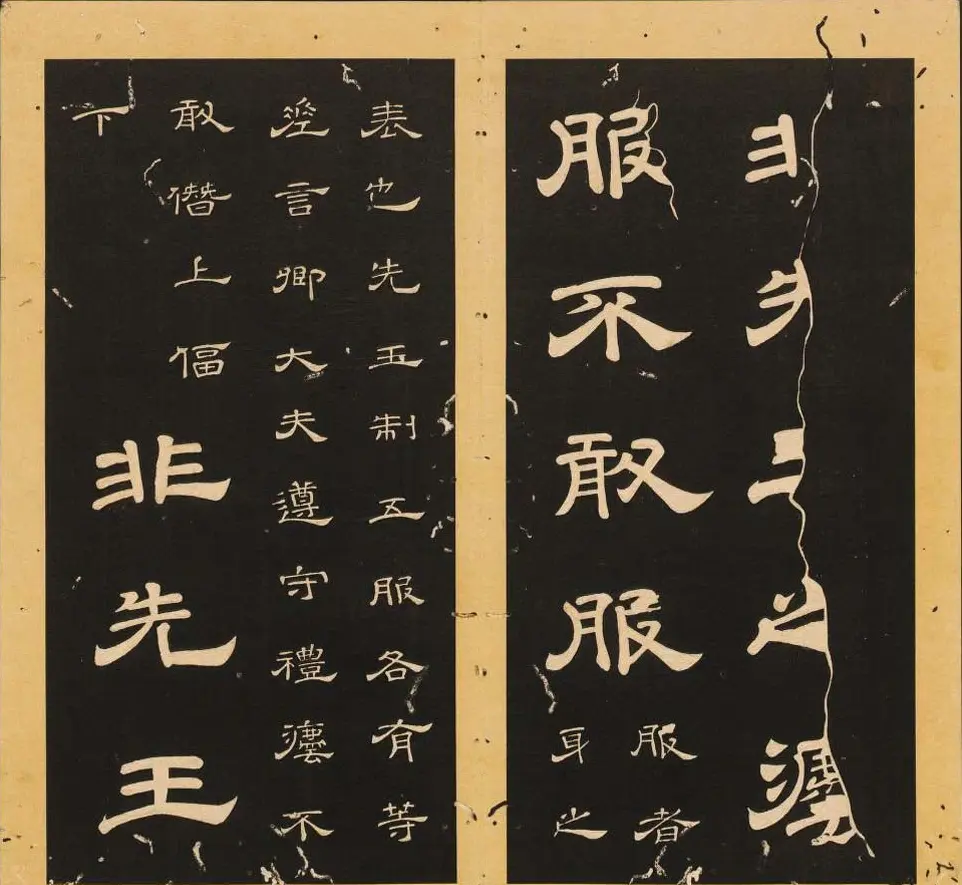 非先王之灋
服不敢服
服者
身之
表也先王制五服各有等
差言卿大夫遵守禮灋不
敢僭上偪
下
非先王